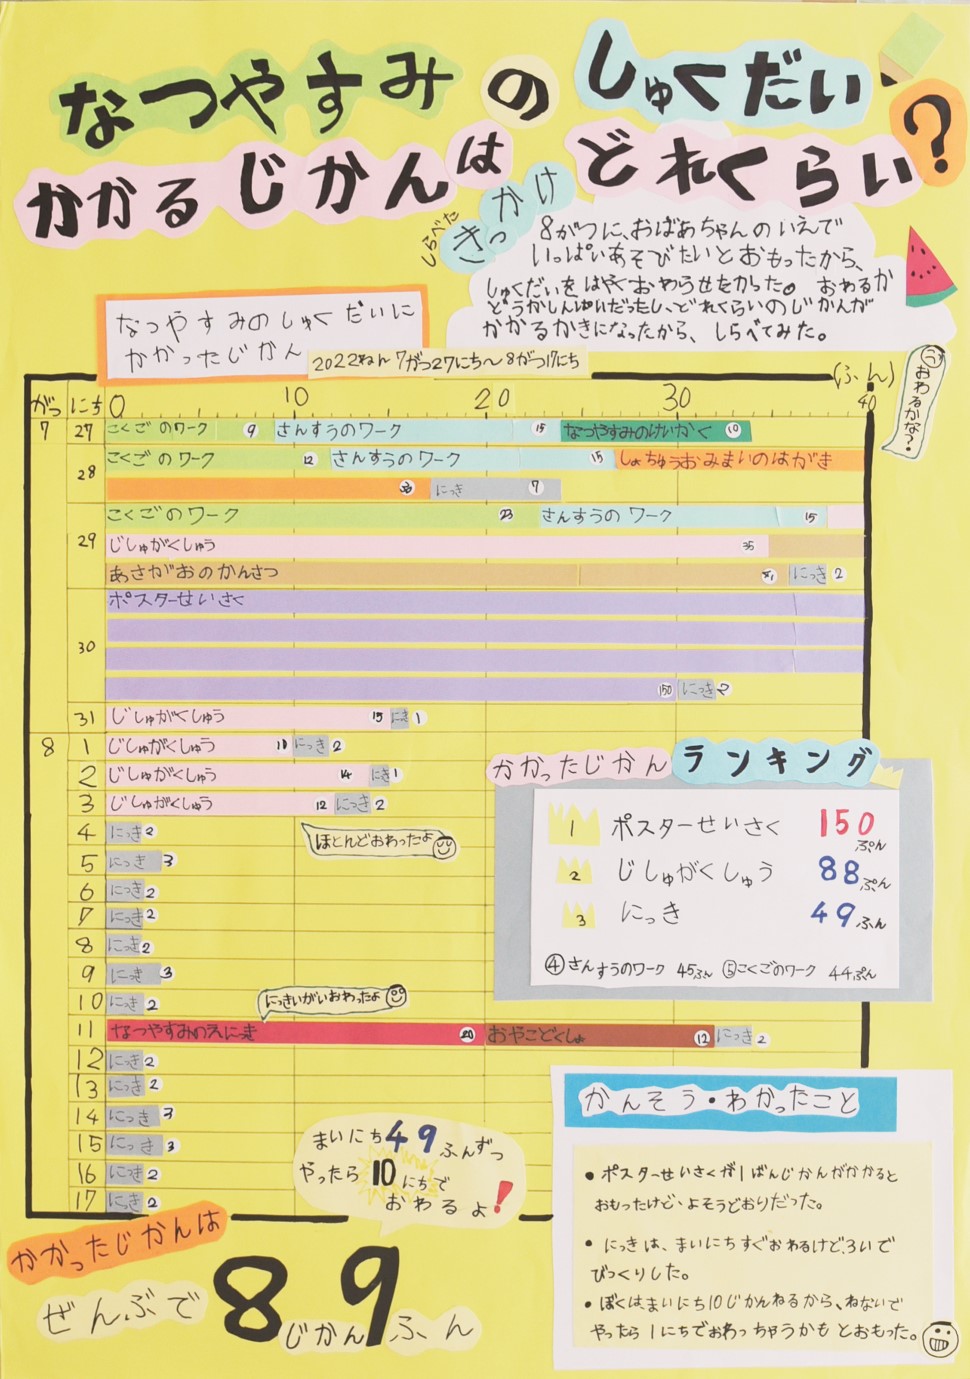 なつやすみのしゅくだい
かかるじかんはどれくらい?
しらべた
きっかけ
8がつに、おばあちゃんのいえで
いっぱいあそびたいとおもったから、
しゅくだいをはやくおわらせたかった。おわるか
どうかしんぱいだったし、どれくらいのじかんが
かかるかきになったから、しらべてみた。
なつやすみのしゅくだいに
かかったじかん
2022ねん 7がつ27にち〜8がつ17にち
(ふん)
おわるかな?
がつ にち 0 10 20 30 40
7 27 こくごのワーク 9 さんすうのワーク 15 なつやすみのけいかく 10
28 こくごのワーク 12 さんすうのワーク 15 しょちゅうおみまいのはがき
にっき 7
29 こくごのワーク 23 さんすうのワーク 15
じしゅがくしゅう 35
あさがおのかんさつ にっき 2
30 ポスターせいさく
150 にっき 2
31 じしゅがくしゅう 15 にっき 1
8 1 じしゅがくしゅう にっき 2
2 じしゅがくしゅう 14 にっき 1
3 じしゅがくしゅう 12 にっき 2
4 にっき 2
ほとんどおわったよ
5 にっき 3
6 にっき 2
7 にっき 2
8 にっき 2
9 にっき 3
10 にっき 2
にっきいがいおわったよ
11 なつやすみのえにっき 20 おやこどくしょ 12 にっき 2
12 にっき 2
13 にっき 2
14 にっき 3
15 にっき 3
16 にっき 2
17 にっき 2
かかったじかんランキング
1 ポスターせいさく 150ぷん
2 じしゅがくしゅう 88ぷん
3 にっき 49ふん
④さんすうのワーク 45ふん ⑤こくごのワーク 44ぷん
まいにち49ふんずつ
やったら10にちで
おわるよ!
かかったじかんは
ぜんぶで8じかん9ふん
かんそう・わかったこと
• ポスターせいさくが1ばんじかんがかかると
おもったけど、よそうどおりだった。
• にっきは、まいにちすぐおわるけど、3いで
びっくりした。
• ぼくはまいにち10じかんねるから、ねないで
やったら1にちでおわっちゃうかもとおもった。